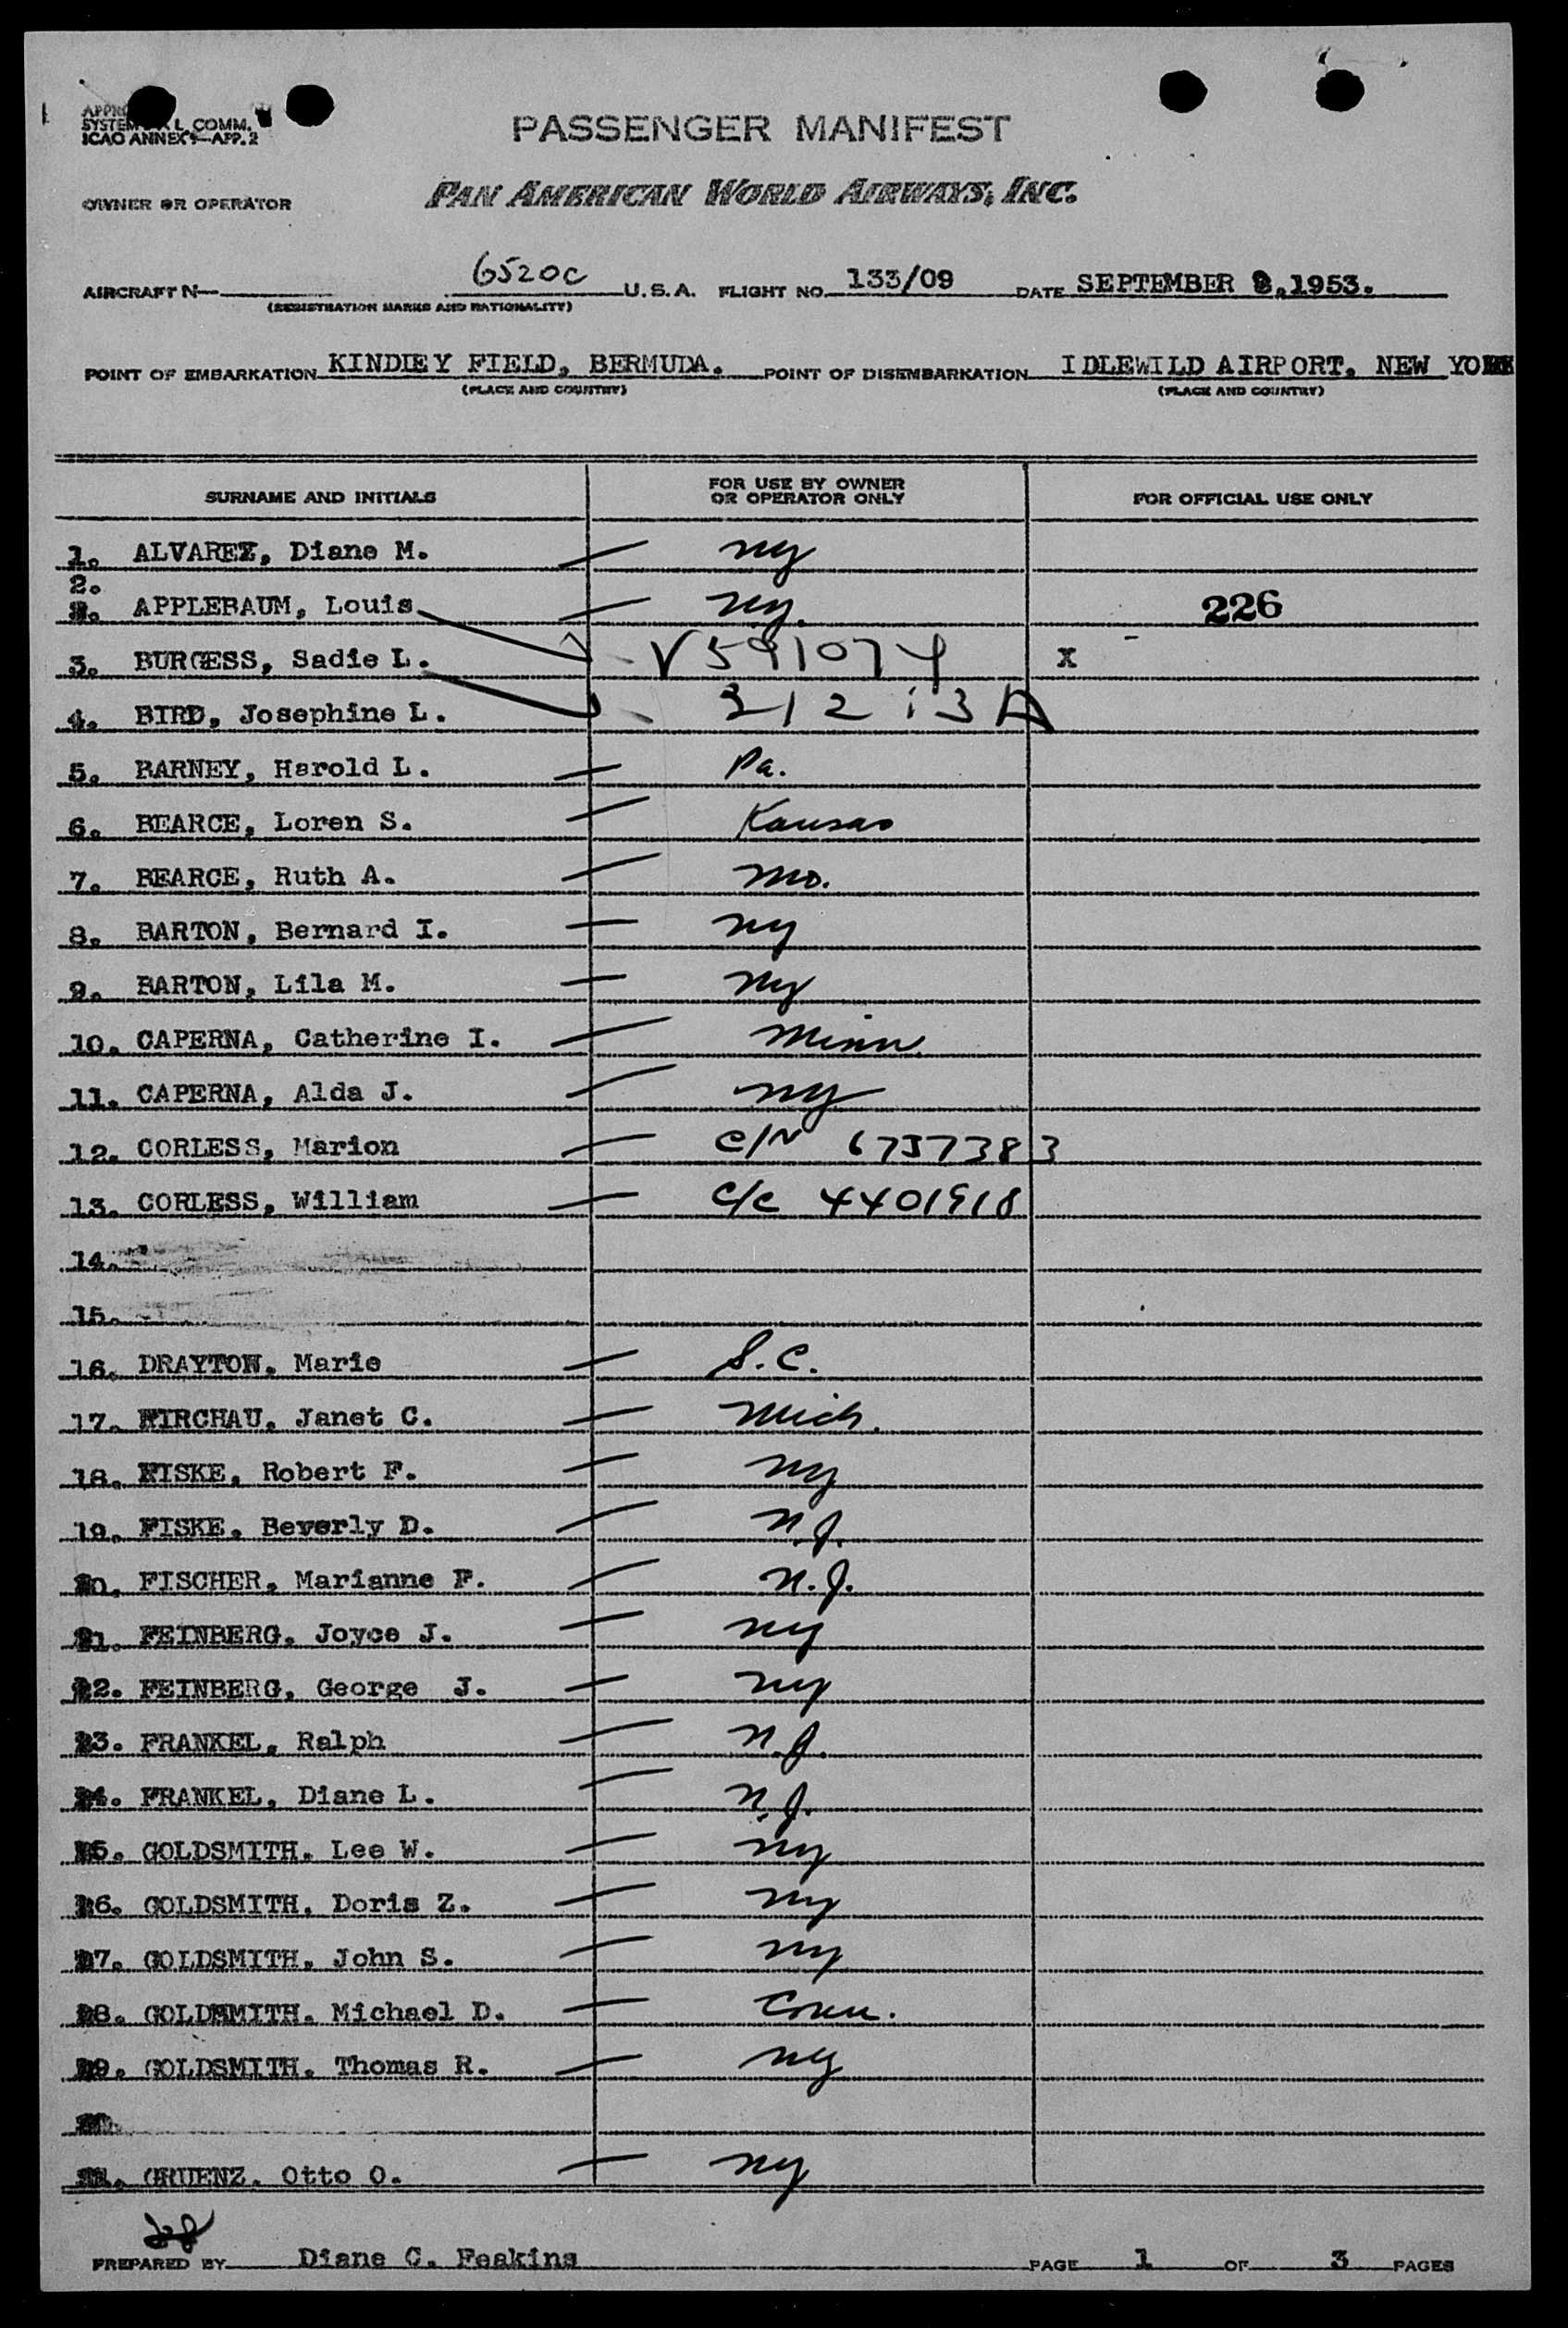 SYSTEM L COMM.
ICAO ANNEX 9—APP. 2
PASSENGER MANIFEST
OWNER OR OPERATOR PAN AMERICAN WORLD AIRWAYS, INC.
AIRCRAFT N— 6520C U.S.A. FLIGHT NO. 133/09 DATE SEPTEMBER 9,1953.
(REGISTRATION MARKS AND NATIONALITY)
POINT OF EMBARKATION KINDLEY FIELD, BERMUDA. POINT OF DISEMBARKATION IDLEWILD AIRPORT. NEW YORK
(PLACE AND COUNTRY) (PLACE AND COUNTRY)
SURNAME AND INITIALS FOR USE BY OWNER OR OPERATOR ONLY FOR OFFICIAL USE ONLY
1. ALVAREZ, Diane M. — ny
2. APPLEBAUM, Louis — ny. 226
3. BURGESS, Sadie L. - V591074 X
4. BIRD, Josephine L. - 31213A
5. BARNEY, Harold L. — Pa.
6. BEARCE, Loren S. — Kansas
7. BEARCE, Ruth A. — Mo.
8. BARTON, Bernard I. — ny
9. BARTON, Lila M. — ny
10. CAPERNA, Catherine I. — Minn.
11. CAPERNA, Alda J. — ny
12. CORLESS, Marion — C/N 6757383
13. CORLESS, William — C/C 4401918
14.
15.
16. DRAYTON. Marie — S.C.
17. FIRCHAU. Janet C. — Mich.
18. FISKE. Robert F. — ny
19. FISKE. Beverly D. — n.J.
20. FISCHER. Marianne F. — n.J.
21. FEINBERG. Joyce J. — ny
22. FEINBERG. George J. — ny
23. FRANKEL. Ralph — n.J.
24. FRANKEL. Diane L. — n.J.
25. GOLDSMITH. Lee W. — ny
26. GOLDSMITH. Doris Z. — ny
27. GOLDSMITH. John S. — ny
28. GOLDSMITH. Michael D. — Conn.
29. GOLDSMITH. Thomas R. — ny
GRUENZ. Otto O. — ny
28
PREPARED BY Diane C. Feakins PAGE 1 OF 3 PAGES